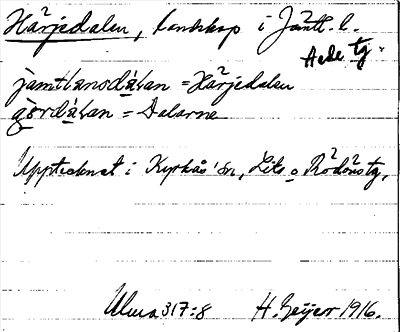 Härjedalen, landskap i Jämtl. l.
Aede tg.
jamtlanodálan = Härjedalen
gördálan = Dalarne
Upptecknat i Kyrkås sn, Lits o Rödöns tg.
Ulma 317:8 H. Geijer 1916.